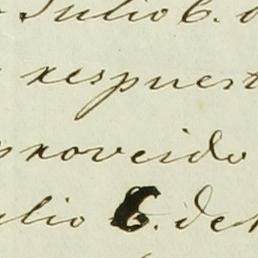 Julio 6. d
respuest
proveido
ulio 6. de